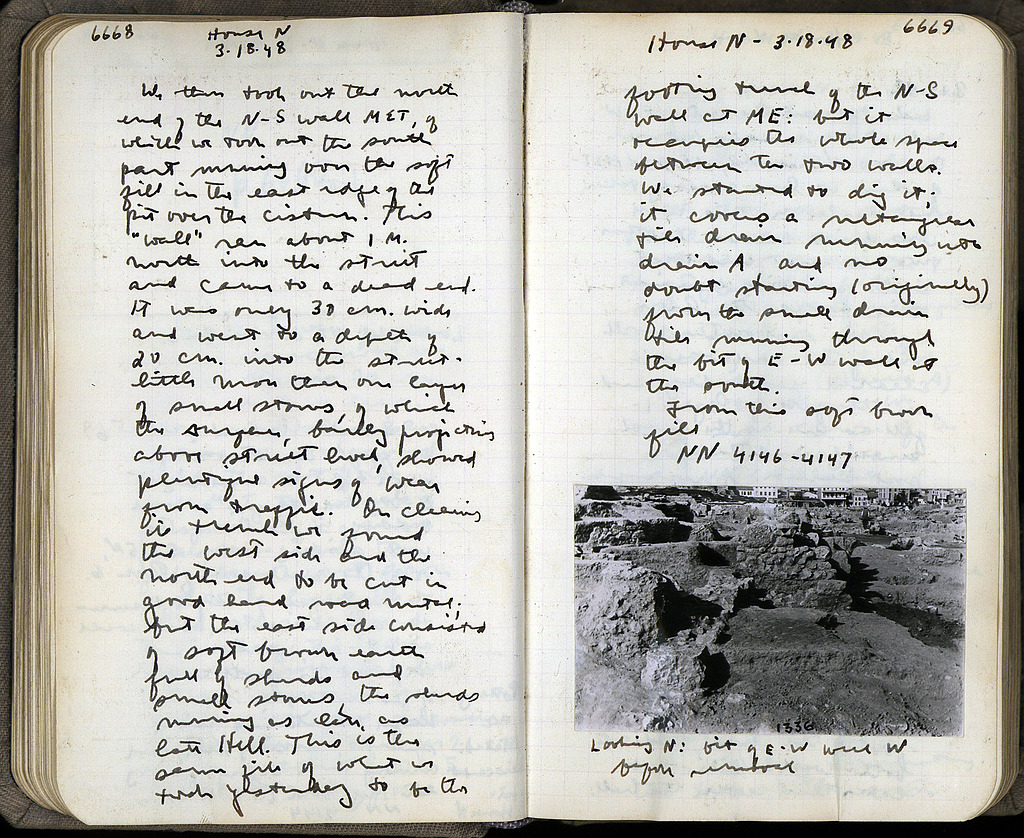 6668
House N
3·18·48
We then took out the north
end of the N-S wall MET, of
which we took out the south
part running over the soft
fill in the east edge of the
pit over the cistern. This
"wall" ran about 1 M.
north into the street
and came to a dead end.
It was only 30 cm. wide
and went to a depth of
20 cm. into the street-
little more than one layer
of small stones, of which
the surface, barely projecting
above street level, showed
plentiful signs of wear
from traffic. On cleaning
its trench we found
the west side and the
north end to be cut in
good hard road metal;
but the east side consisted
of soft brown earth
full of sherds and
small stones, the sherds
running as late as
late Hell. This is the
same fill of what we
took yesterday to be the
6669
House N - 3·18·48
footing trench of the N-S
wall at ME: but it
occupies the whole space
between the two walls.
We started to dig it;
it covers a rectangular
tile drain running into
drain A and no
doubt starting (originally)
from the small drain
tiles running through
the bit of E-W wall at
the south.
From this soft brown
fill
NN 4146-4147
1336
Looking N: bit of E-W wall W
before removal